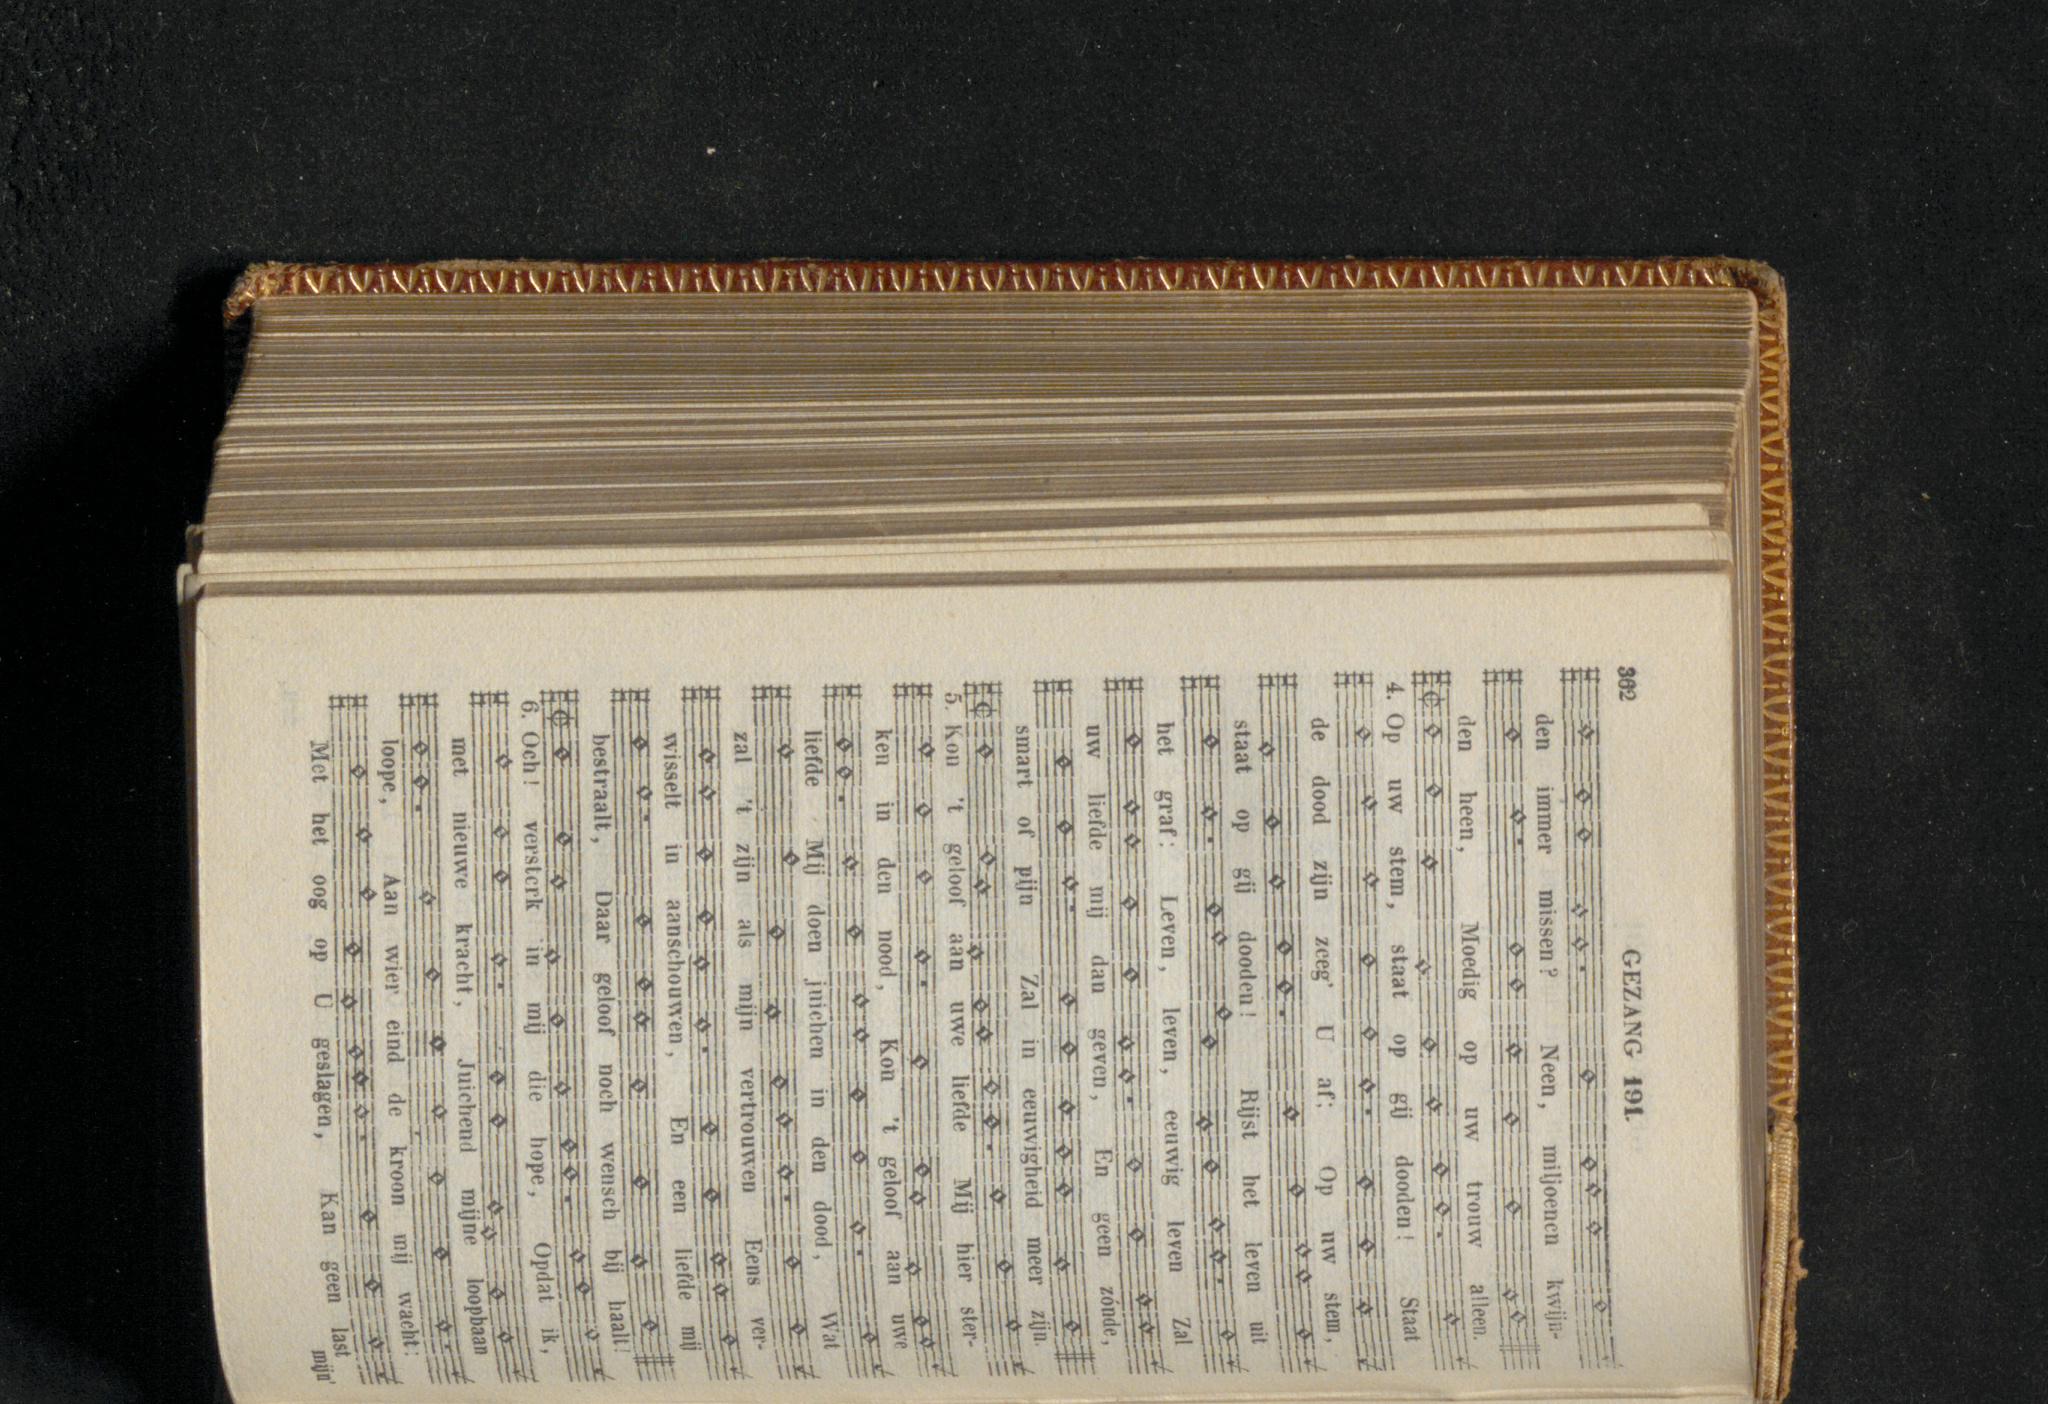 362
GEZANG 191.
den immer missen? Neen, miljoenen kwijn-
den heen, Moedig op uw trouw alleen.
4. Op uw stem, staat op gij dooden! Staat
de dood zijn zeeg' U af; Op uw stem,
staat op gij dooden! Rijst het leven uit
het graf: Leven, leven, eeuwig leven Zal
uw liefde mij dan geven, En geen zónde,
smart of pijn Zal in eeuwigheid meer zijn.
5. Kon 't geloof aan uwe liefde Mij hier ster-
ken in den nood, Kon 't geloof aan uwe
liefde Mij doen juichen in den dood, Wat
zal 't zijn als mijn vertrouwen Eens ver-
wisselt in aanschouwen, En een liefde mij
bestraalt, Daar geloof noch wensch bij haalt!
6. Och! versterk in mij die hope, Opdat ik,
met nieuwe kracht, Juichend mijne loopbaan
loope, Aan wier eind de kroon mij wacht:
Met het oog op U geslagen, Kan geen last
mijn'